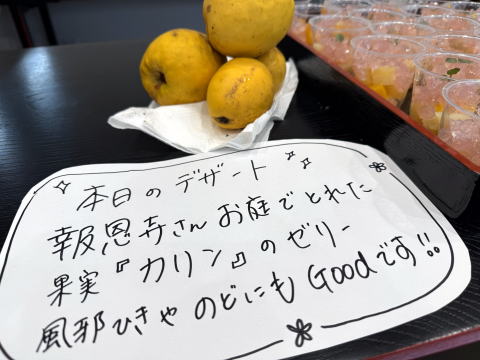 本日のデザート
報恩寺さんお庭でとれた
果実『カリン』のゼリー
風邪ひきやのどにもGoodです!!